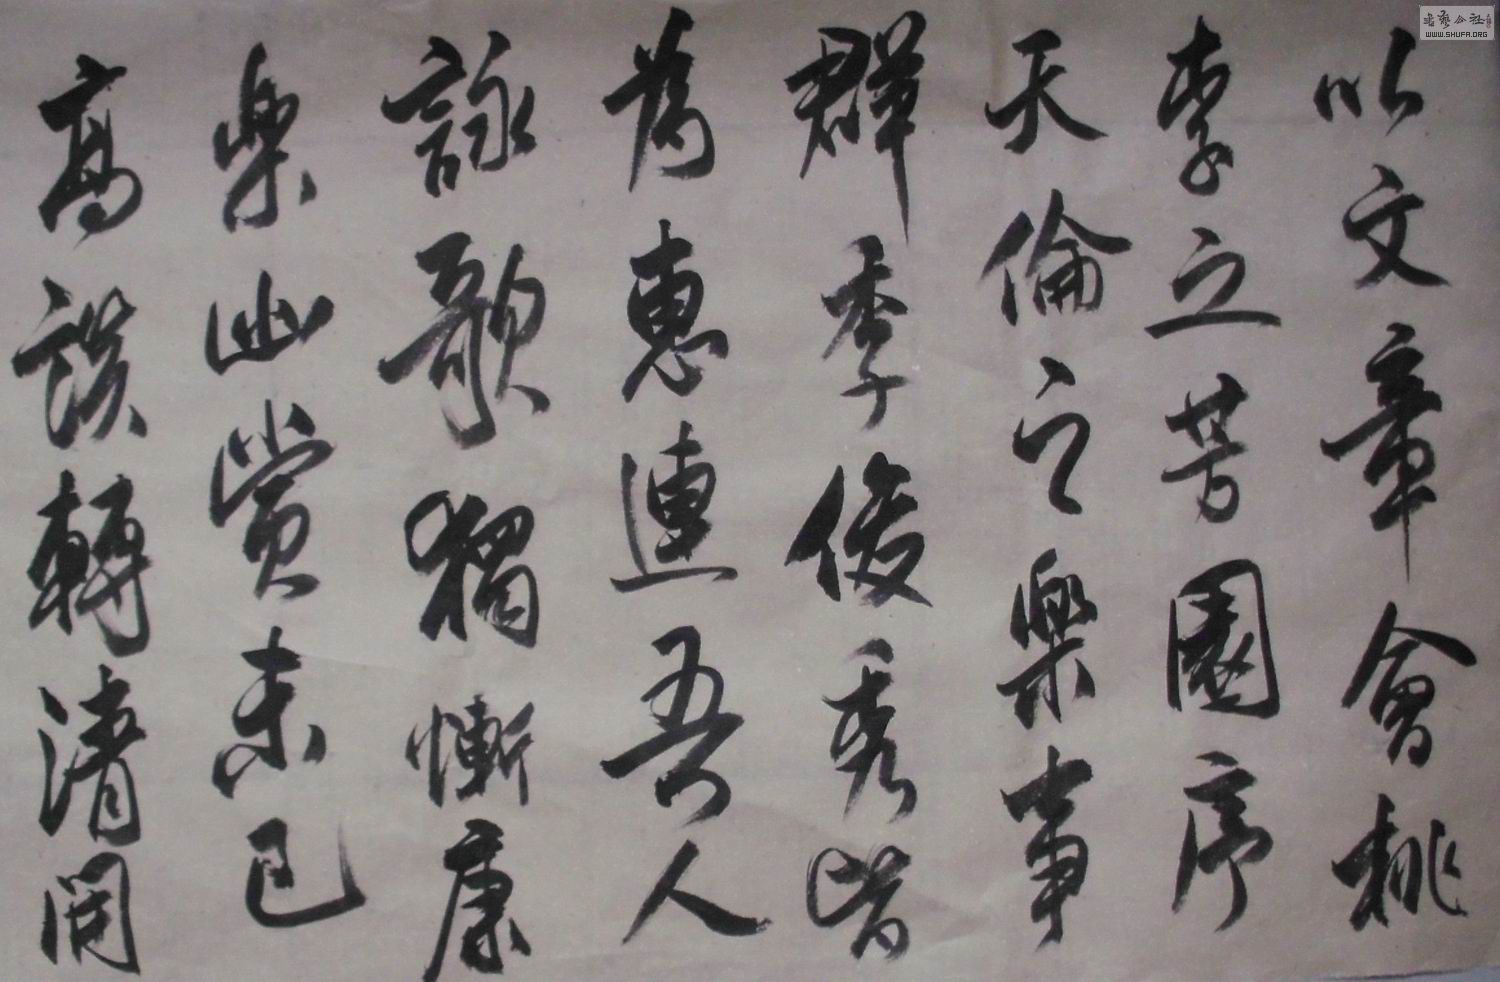 以文章會桃
李之芳園序
天倫之樂事
群季俊秀皆
為惠連吾人
詠歌獨慚康
樂幽賞未已
高談轉清開
書藝公社
WWW.SHUFA.ORG